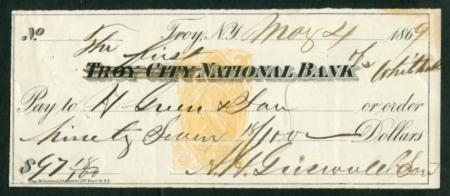 No Troy, N.Y. May 4 1869
The first
TROY CITY NATIONAL BANK of Whitehall
Pay to H Green & Son or order
Ninety Seven 18/100 Dollars
$97 18/100 A.H. Griswold & Son